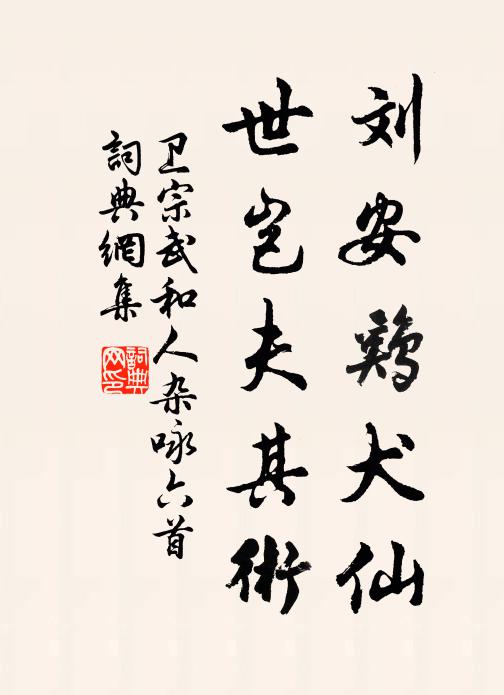 刘安鶏犬仙
世岂夫其術
卫宗武和人杂咏六首
詞典網集
詞典
网印